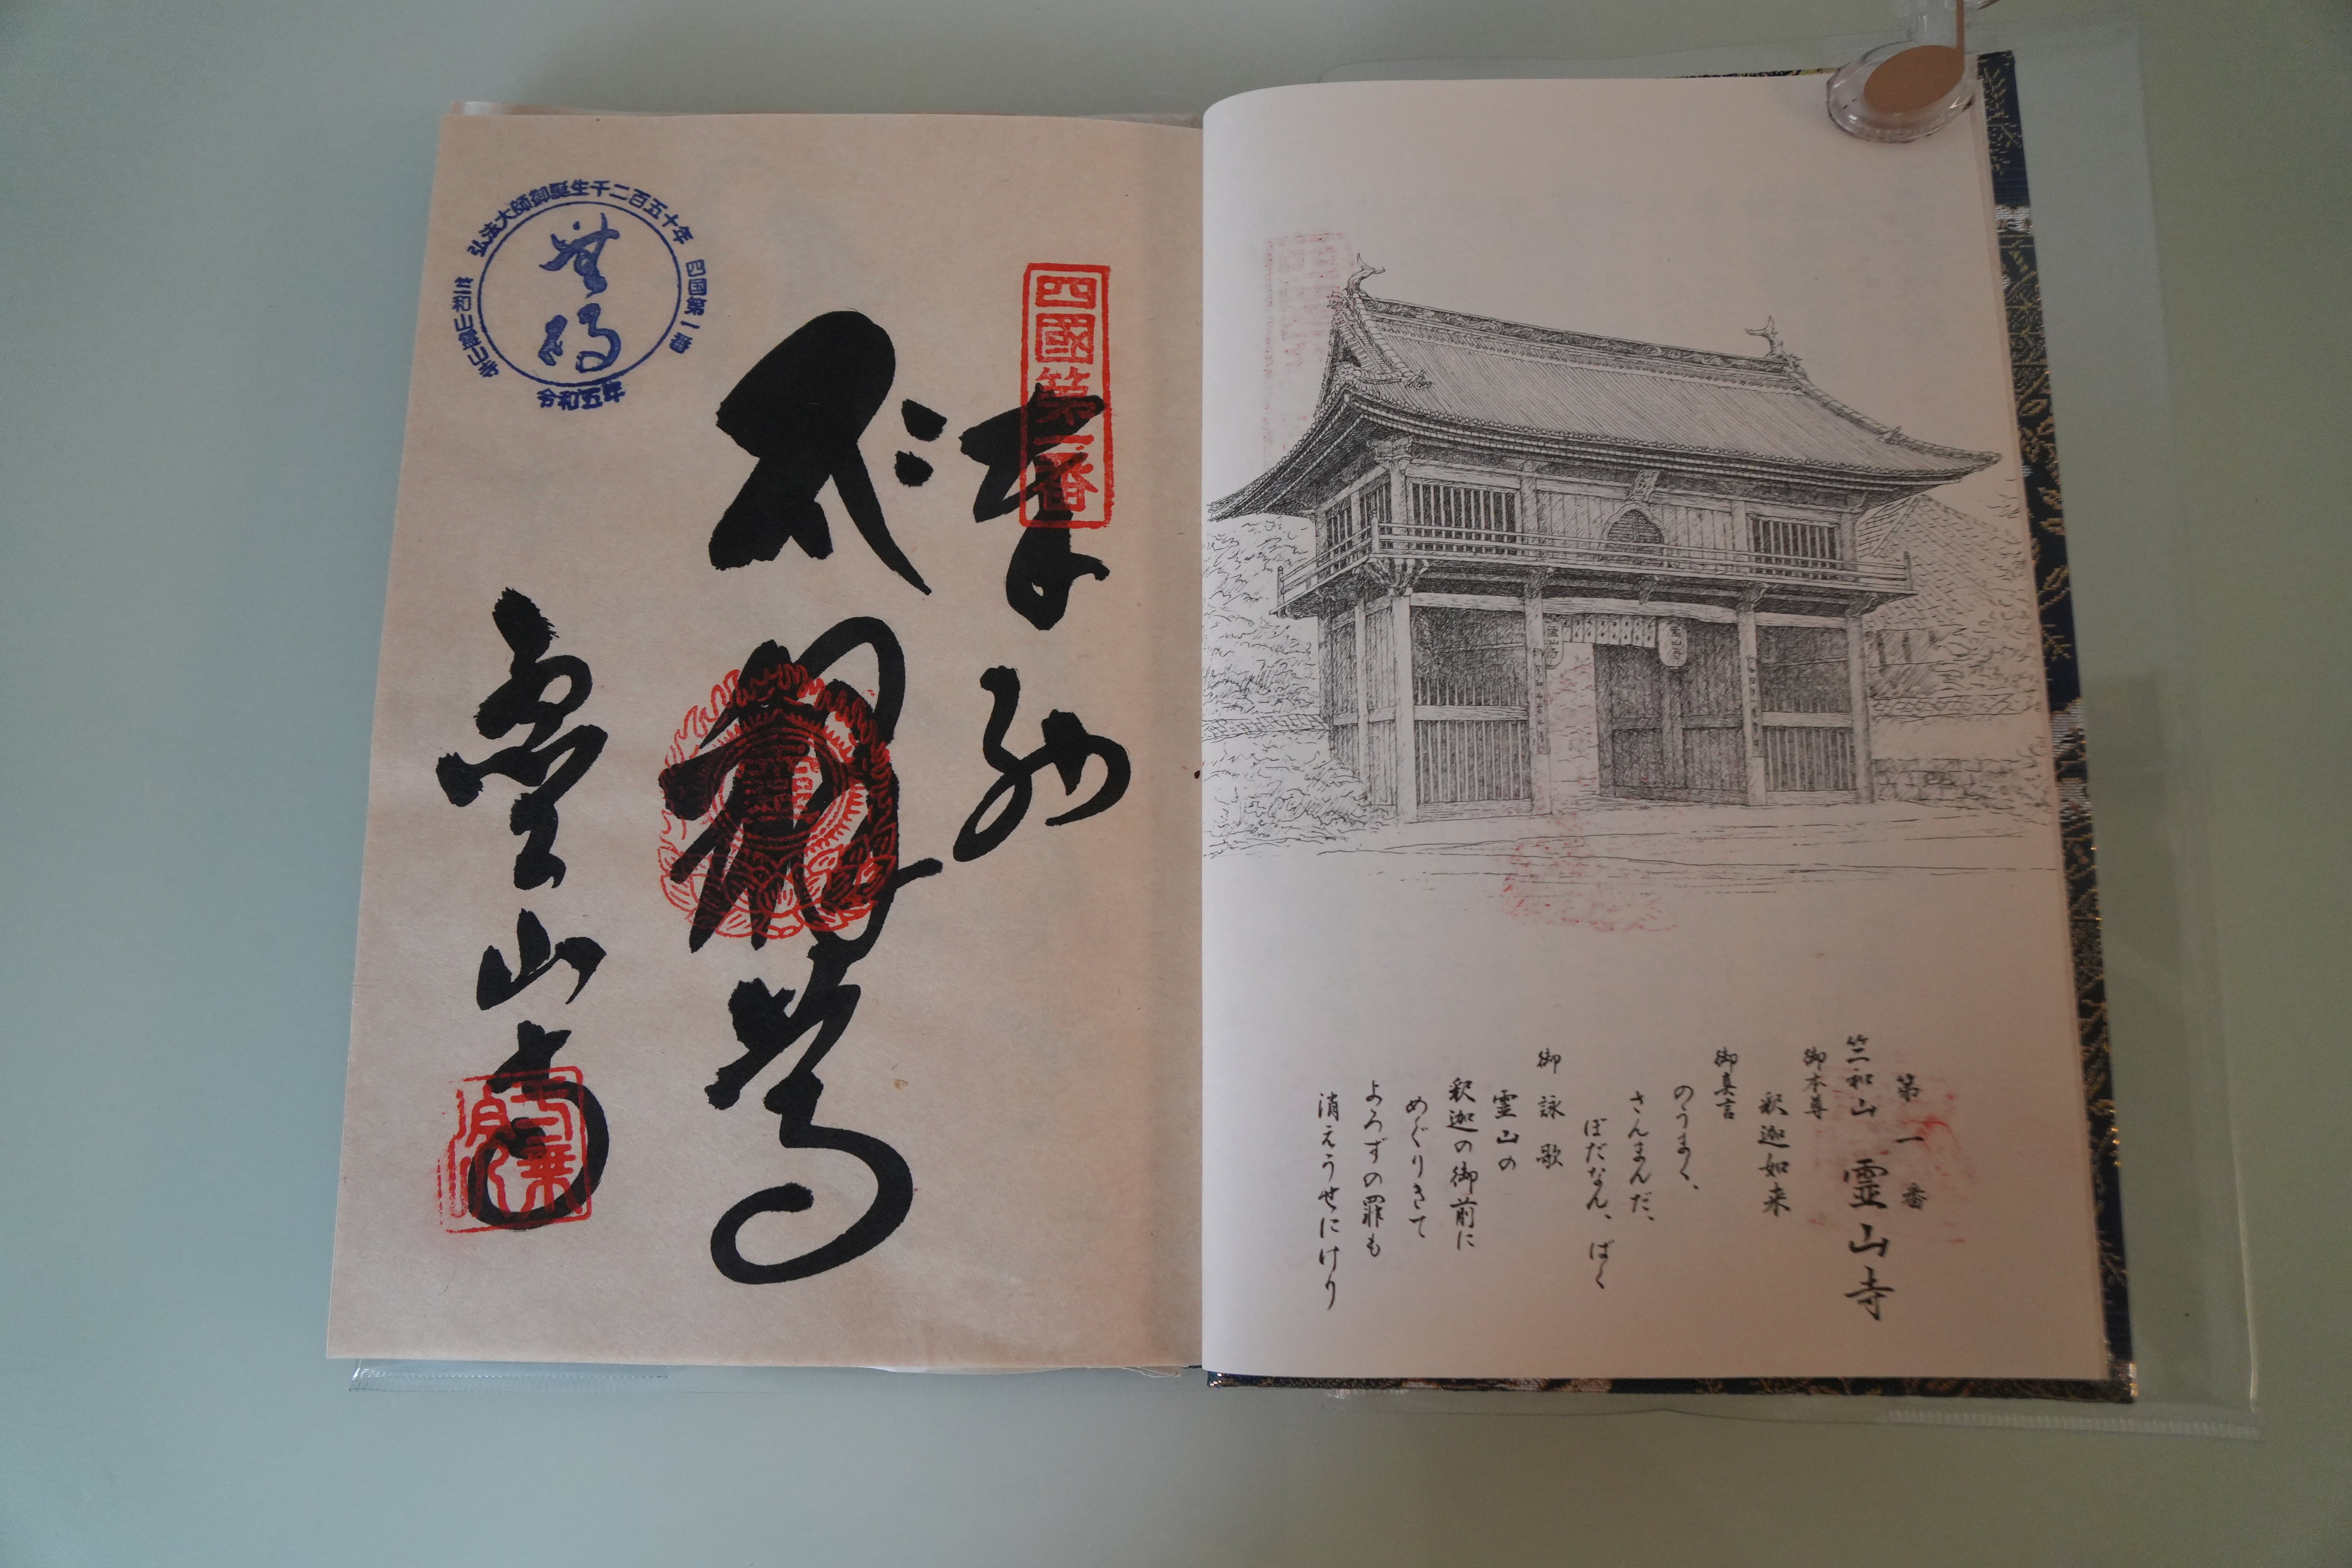 第一番
竺和山 霊山寺
御本尊
釈迦如来
御真言
のうまく、
さんまんだ、
ぼだなん、ばく
御詠歌
霊山の
釈迦の御前に
めぐりきて
よろずの罪も
消えうせにけり
四國第一番
奉納
釈迦尊
霊山寺
弘法大師御誕生千二百五十年
四国第一番
竺和山霊山寺
令和五年